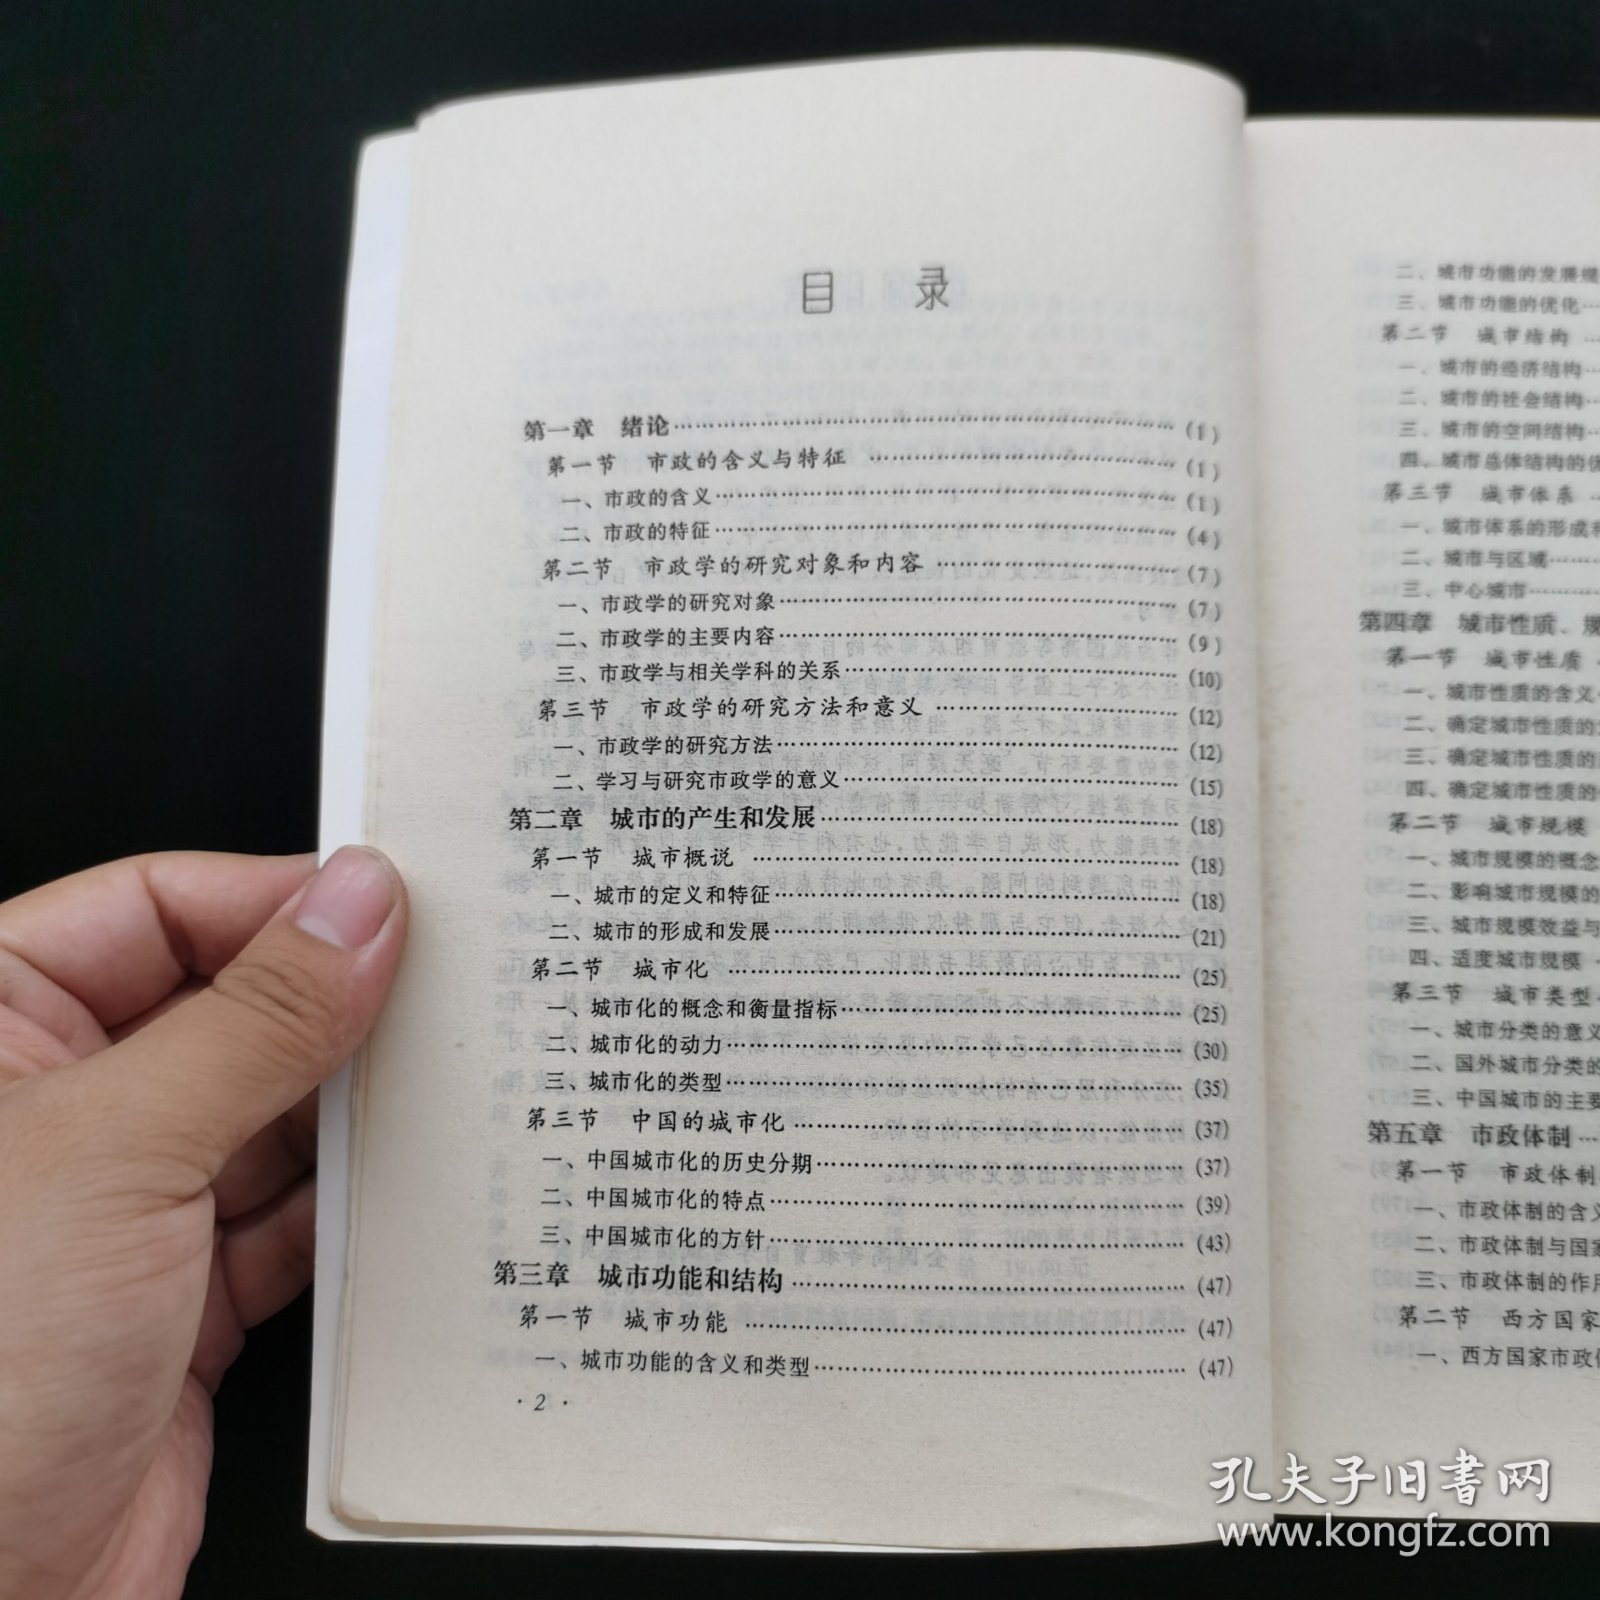 目 录
第一章 绪论……………………………………………… (1)
第一节 市政的含义与特征 …………………………… (1)
一、市政的含义………………………………………… (1)
二、市政的特征………………………………………… (4)
第二节 市政学的研究对象和内容 …………………… (7)
一、市政学的研究对象………………………………… (7)
二、市政学的主要内容………………………………… (9)
三、市政学与相关学科的关系………………………… (10)
第三节 市政学的研究方法和意义 …………………… (12)
一、市政学的研究方法………………………………… (12)
二、学习与研究市政学的意义………………………… (15)
第二章 城市的产生和发展……………………………… (18)
第一节 城市概说 ……………………………………… (18)
一、城市的定义和特征………………………………… (18)
二、城市的形成和发展………………………………… (21)
第二节 城市化 ………………………………………… (25)
一、城市化的概念和衡量指标………………………… (25)
二、城市化的动力……………………………………… (30)
三、城市化的类型……………………………………… (35)
第三节 中国的城市化 ………………………………… (37)
一、中国城市化的历史分期…………………………… (37)
二、中国城市化的特点………………………………… (39)
三、中国城市化的方针………………………………… (43)
第三章 城市功能和结构………………………………… (47)
第一节 城市功能 ……………………………………… (47)
一、城市功能的含义和类型…………………………… (47)
· 2 ·
二、城市功能的发展规
三、城市功能的优化…
第二节 城市结构 …
一、城市的经济结构…
二、城市的社会结构…
三、城市的空间结构…
四、城市总体结构的优
第三节 城市体系 …
一、城市体系的形成和
二、城市与区域………
三、中心城市…………
第四章 城市性质、规
第一节 城市性质
一、城市性质的含义
二、确定城市性质的
三、确定城市性质的
四、确定城市性质的
第二节 城市规模
一、城市规模的概念
二、影响城市规模的
三、城市规模效益与
四、适度城市规模
第三节 城市类型
一、城市分类的意义
二、国外城市分类的
三、中国城市的主要
第五章 市政体制…
第一节 市政体制
一、市政体制的含义
二、市政体制与国家
三、市政体制的作用
第二节 西方国家
一、西方国家市政体
孔夫子旧书网
www.kongfz.com